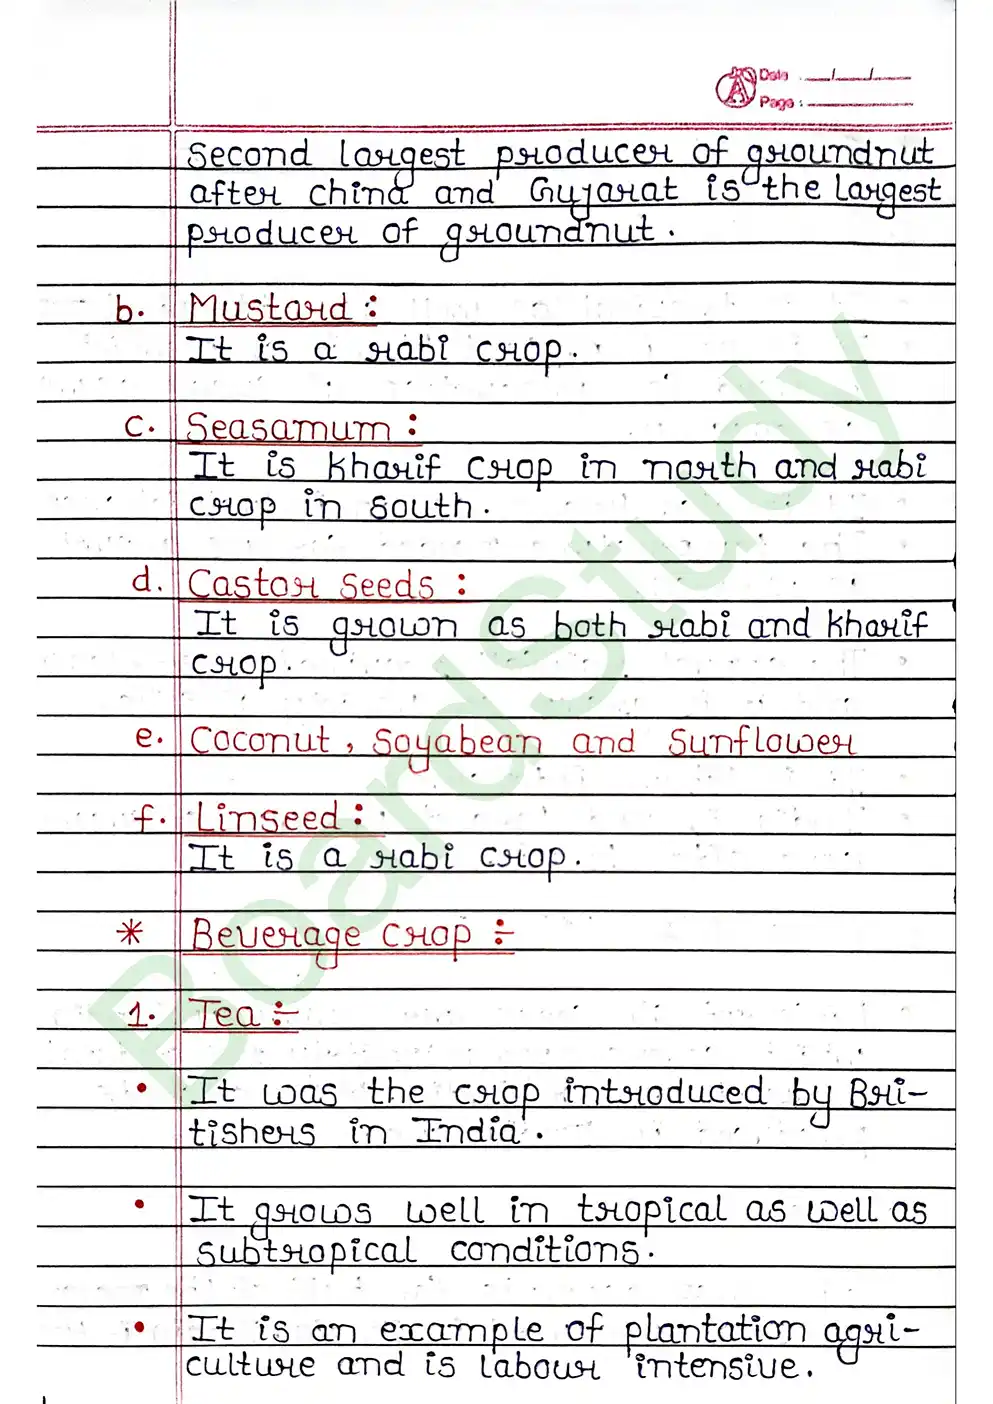 Date : __/__/__
Page : ______
Second largest producer of groundnut
after china and Gujarat is the largest
producer of groundnut.
b. Mustard :
It is a rabi crop.
c. Seasamum :
It is kharif crop in north and rabi
crop in south.
d. Castor seeds :
It is grown as both rabi and kharif
crop.
e. Coconut, Soyabean and Sunflower
f. Linseed :
It is a rabi crop.
* Beverage crop :-
1. Tea :-
• It was the crop introduced by Bri-
tishers in India.
• It grows well in tropical as well as
subtropical conditions.
• It is an example of plantation agri-
culture and is labour intensive.
BoardStudy